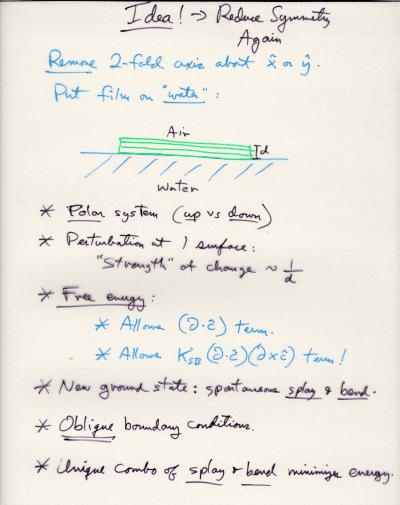 Idea! → Reduce Symmetry
Again
Remove 2-fold axis about x̂ or ŷ.
Put film on "water":
Air
d
Water
* Polar system (up vs down)
* Perturbation at 1 surface:
"Strength" of change ~ 1/d
* Free energy:
* Allows (∂·ĉ) term.
* Allows K_SB (∂·ĉ)(∂×ĉ) term!
* New ground state: spontaneous splay & bend.
* Oblique boundary conditions.
* Unique combo of splay & bend minimizes energy.